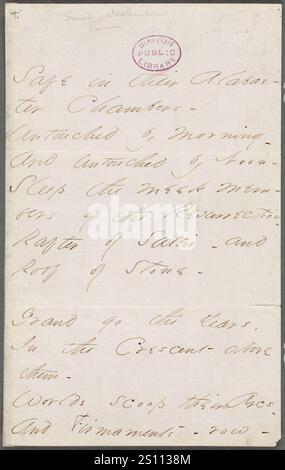 Emily Dickinson
BOSTON
PUBLIC
LIBRARY
Safe in their Alabas-
ter Chambers-
Untouched by morning-
And untouched by Noon-
Sleep the meek mem-
bers of the Resurrection-
Rafter of Satin- and
Roof of Stone-
Grand go the Years,
In the Crescent above
them-
Worlds scoop their Arcs-
And Firmaments- row-
alamy
Image ID: 2S1138M
www.alamy.com